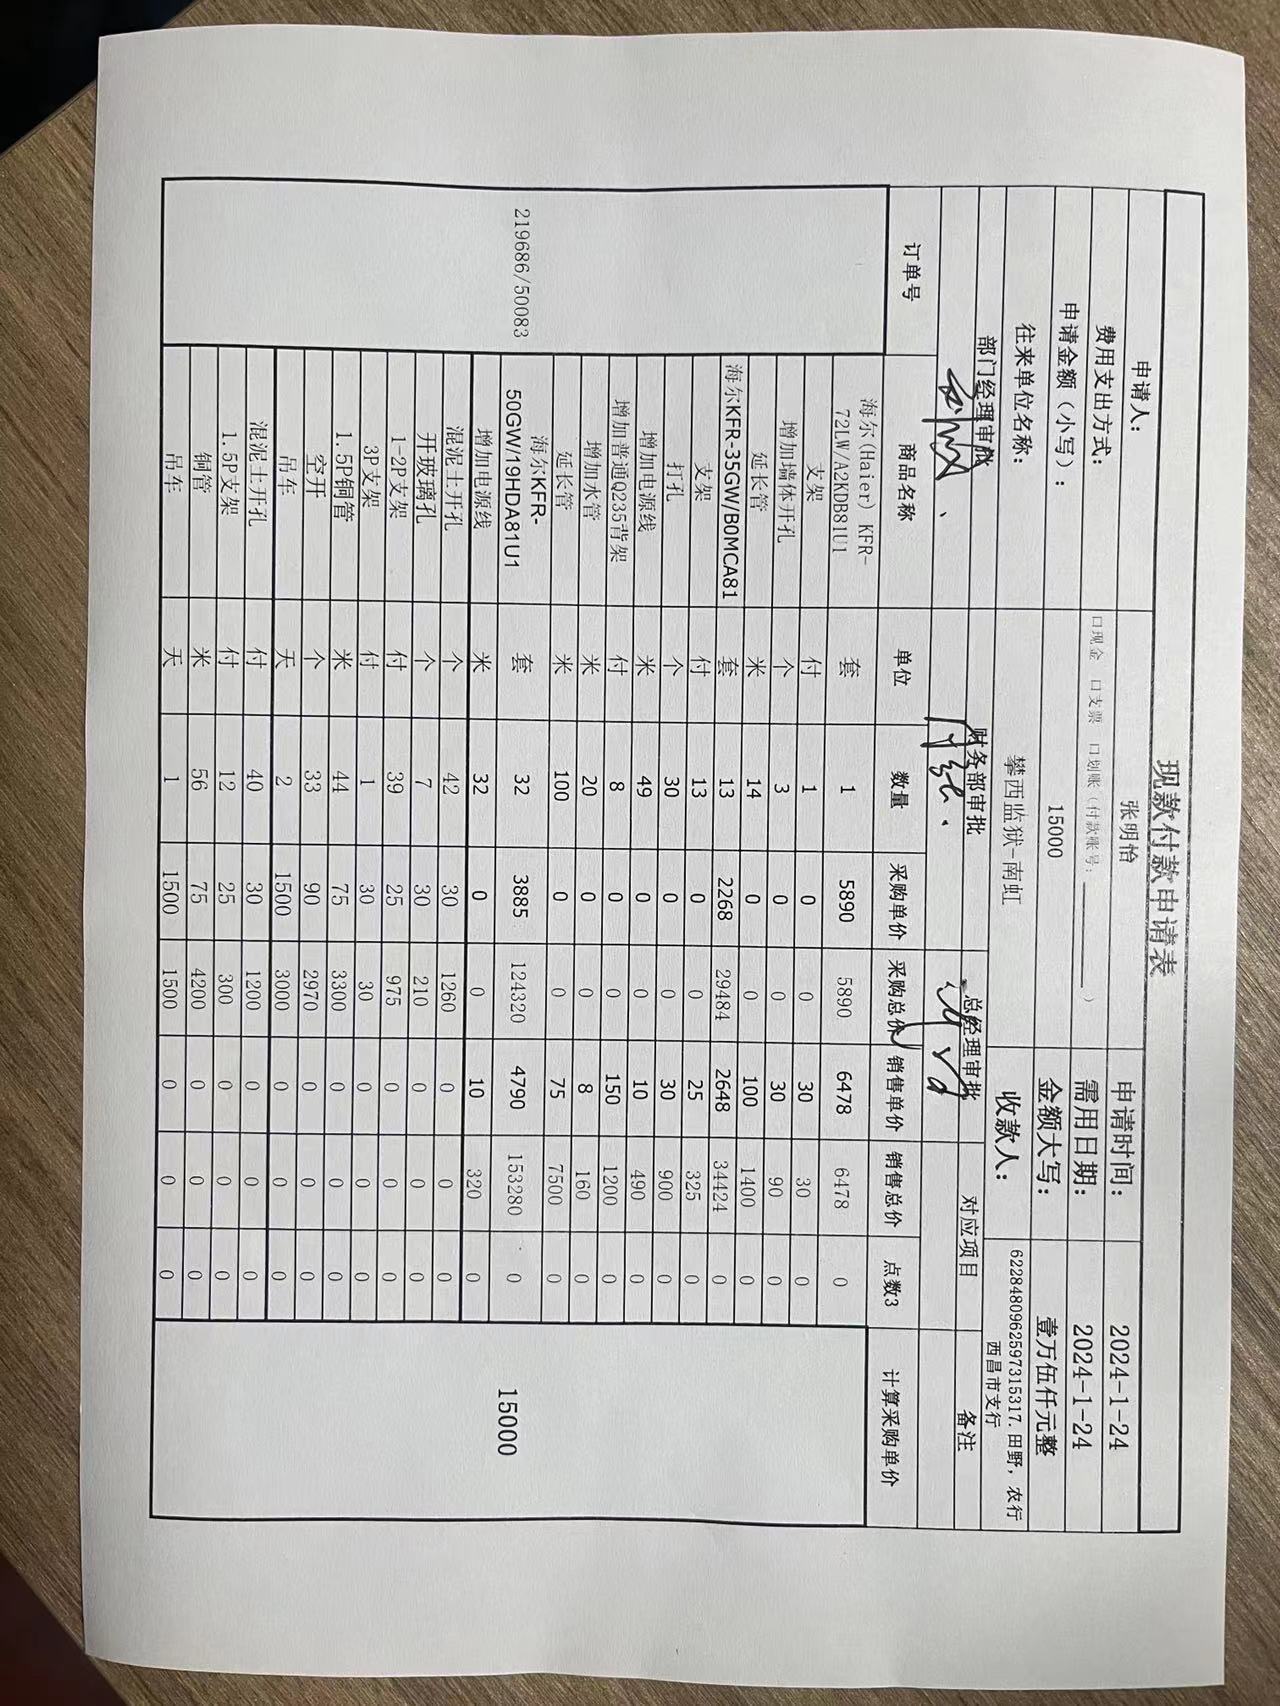 现款付款申请表
申请人： 张明怡 申请时间： 2024-1-24
费用支出方式： 口现金 口支票 口划账（付款账号：________） 需用日期： 2024-1-24
申请金额（小写）： 15000 金额大写： 壹万伍仟元整
往来单位名称： 攀西监狱-南虹 收款人： 6228480962597315317. 田野，农行
西昌市支行
部门经理审批 财务部审批 总经理审批 对应项目 备注
订单号 商品名称 单位 数量 采购单价 采购总价 销售单价 销售总价 点数3 计算采购单价
219686/50083
海尔（Haier）KFR-
72LW/A2KDB81U1 套 1 5890 5890 6478 6478 0
支架 付 1 0 0 30 30 0
增加墙体开孔 个 3 0 0 30 90 0
延长管 米 14 0 0 100 1400 0
海尔KFR-35GW/B0MCA81 套 13 2268 29484 2648 34424 0
支架 付 13 0 0 25 325 0
打孔 个 30 0 0 30 900 0
增加电源线 米 49 0 0 10 490 0
增加普通Q235背架 付 8 0 0 150 1200 0
增加水管 米 20 0 0 8 160 0
延长管 米 100 0 0 75 7500 0
海尔KFR-
50GW/19HDA81U1 套 32 3885 124320 4790 153280 0
15000
增加电源线 米 32 0 0 10 320 0
混泥土开孔 个 42 30 1260 0 0 0
开玻璃孔 个 7 30 210 0 0 0
1-2P支架 付 39 25 975 0 0 0
3P支架 付 1 30 30 0 0 0
1.5P铜管 米 44 75 3300 0 0 0
空开 个 33 90 2970 0 0 0
吊车 天 2 1500 3000 0 0 0
混泥土开孔 付 40 30 1200 0 0 0
1.5P支架 付 12 25 300 0 0 0
铜管 米 56 75 4200 0 0 0
吊车 天 1 1500 1500 0 0 0